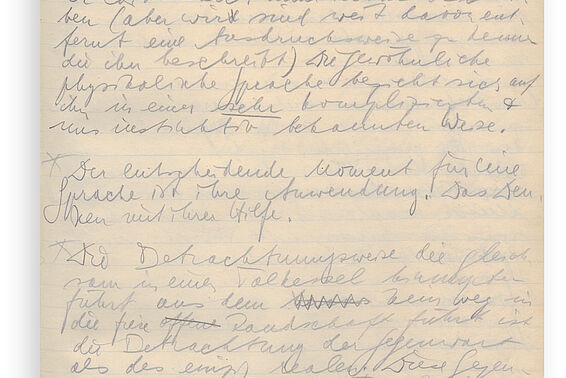 ben (aber wir sind weit davon ent-
fernt eine Ausdrucksweise zu kennen
die ihn beschreibt) Die gewöhnliche
physikalische Sprache bezieht sich auf
ihn in einer sehr komplizierten &
uns instinktiv bekannten Weise.
Der entscheidende Moment für eine
Sprache ist ihre Anwendung. Das Den-
ken mit ihrer Hilfe.
Die Betrachtungsweise die gleich-
sam in einen Talkessel
führt aus dem kein Weg in
die freie offene Landschaft führt ist
die Betrachtung der Gegenwart
als des einzig realen. Diese Gegen-